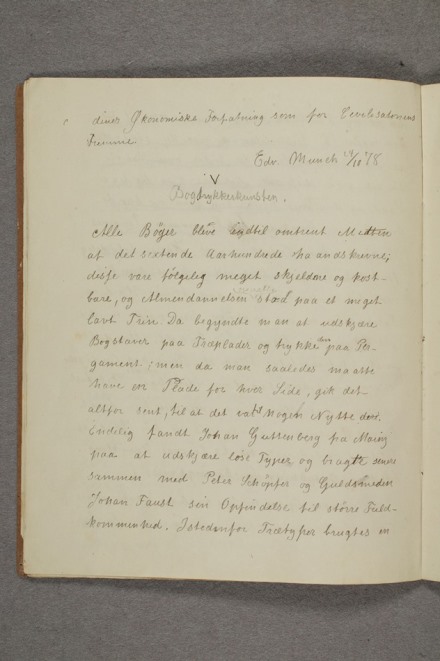 diner Økonomiske Forfatning som for Civilisationens
Fremme.
Edv. Munch 14/10 78
V
Bogtrykkerkunsten.
Alle Bøger blive indtil omtrent Midten
af det sextende Aarhundrede haandskrevne;
disse vare fölgelig meget skjeldne og kost-
bare, og Almendannelsen stod paa et meget
lavt Trin. Da begyndte man at udskjære
Bogstaver paa Træplader og trykke dem paa Per-
gament; men da man saaledes maatte
have en Plade for hver Side, gik det
altfor sent, til at det var nogen Nytte deri.
Endelig fandt Johan Guttenberg fra Mainz
paa at udskjære löse Typer og bragte senere
sammen med Peter Schöpfer og Guldsmeden
Johan Faust sin Opfindelse til större Fuld-
kommenhed. Istedenfor Trætyper brugtes en